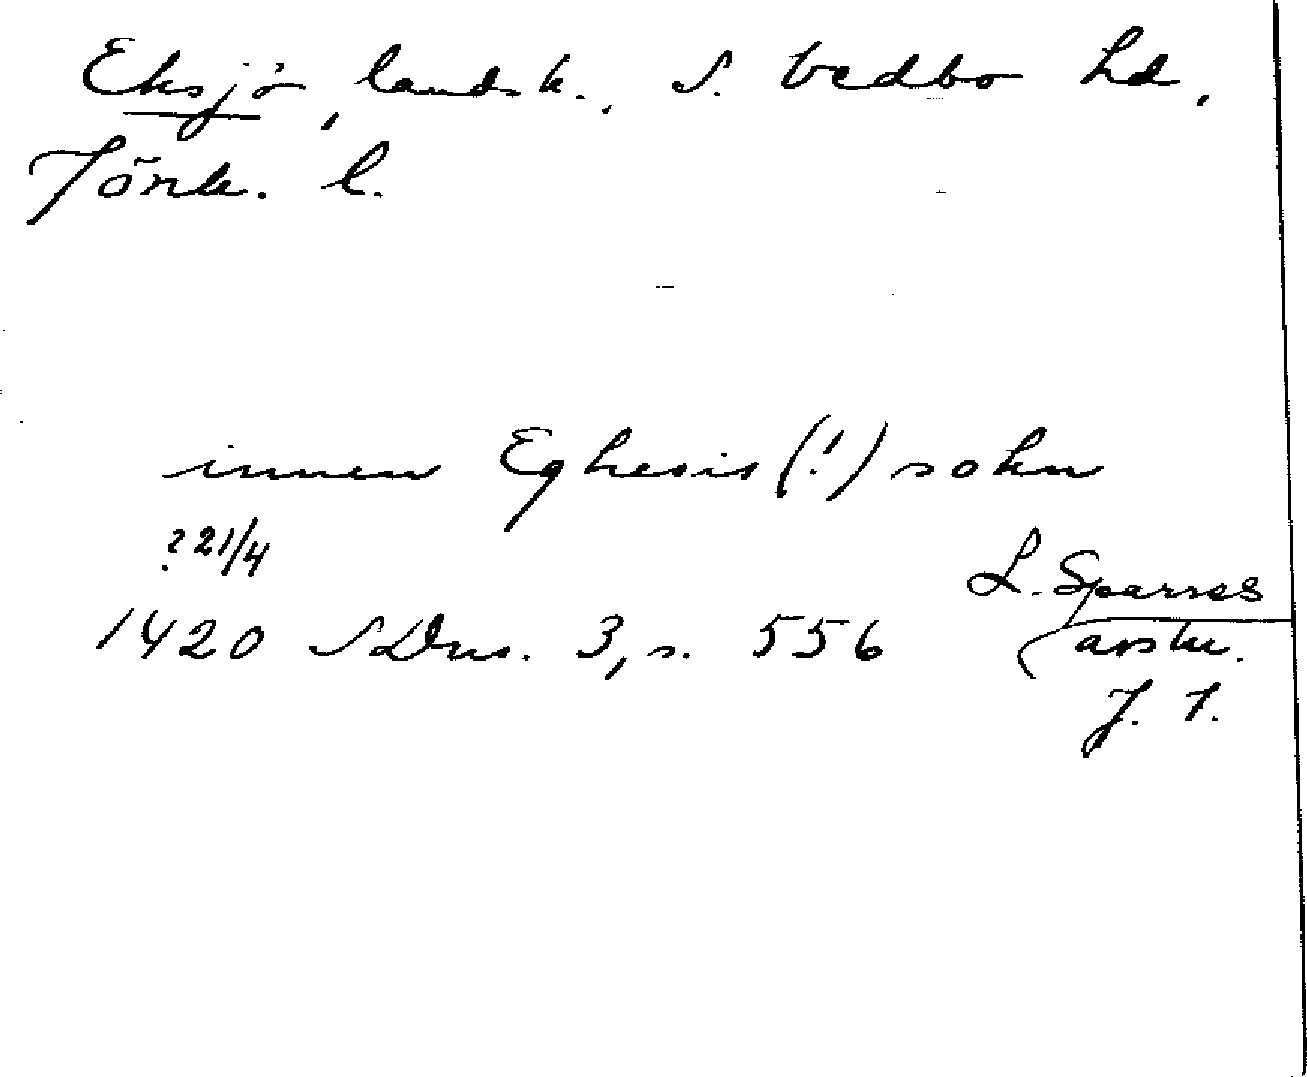 Eksjö, landsk., S. Vedbo hd,
Jönk. l.
innen Eghesis (!) sokn
? 21/4
1420 SDns. 3, s. 556
L. Sparres
avskr.